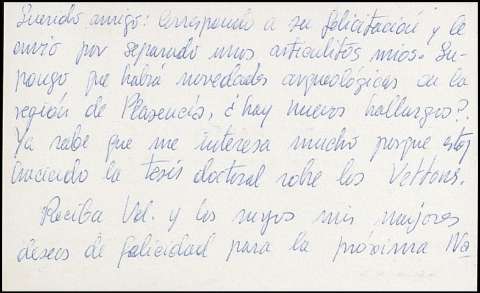 Querido amigo: Correspondo a su felicitación y le
envío por separado unos articulitos míos. Su-
pongo que habrá novedades arqueológicas en la
región de Plasencia, ¿hay nuevos hallazgos?.
Ya sabe que me interesa mucho porque estoy
haciendo la tesis doctoral sobre los Vettones.
Reciba Vd. y los suyos mis mejores
deseos de felicidad para la próxima Na